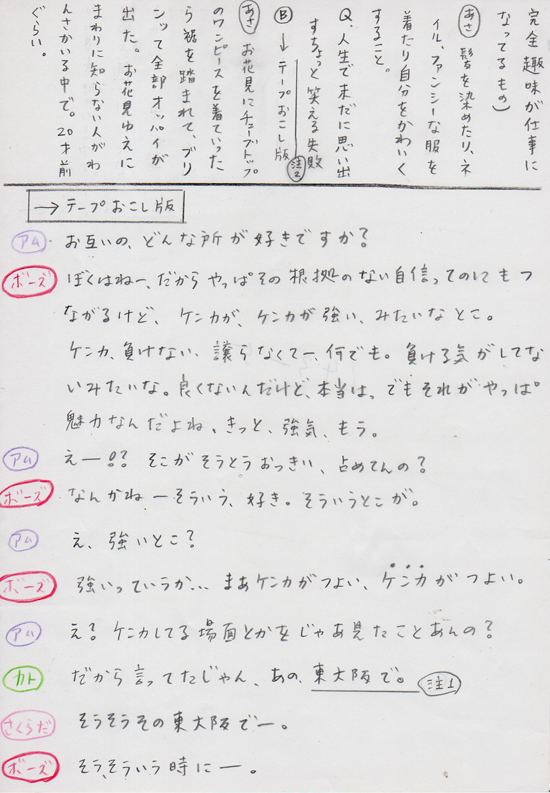 完全趣味が仕事に
なってるもの)
あさ 髪を染めたり、ネ
イル、ファンシーな服を
着たり自分をかわいく
すること。
Q、人生でまだに思い出
すちょっと笑える失敗
B→テープおこし版 注2
あさ お花見にチューブトップ
のワンピースを着ていった
ら裾を踏まれて、ブリ
ンッて全部オッパイが
出た。お花見ゆえに
まわりに知らない人がわ
んさかいる中で。20才前
ぐらい。
→テープおこし版
アム お互いの、どんな所が好きですか?
ボーズ ぼくはねー、だからやっぱその根拠のない自信ってのにもつ
ながるけど、ケンカが、ケンカが強い、みたいなとこ。
ケンカ、負けない、譲らなくてー、何でも。負ける気がしてな
いみたいな。良くないんだけど、本当は、でもそれがやっぱ
魅力なんだよね、きっと、強気、もう。
アム えー!? そこがそうとうおっきい、占めてんの?
ボーズ なんかねーそういう、好き。そういうとこが。
アム え、強いとこ?
ボーズ 強いっていうか… まあケンカがつよい、ケンカがつよい。
アム え? ケンカしてる場面とかをじゃあ見たことあんの?
カト だから言ってたじゃん、あの、東大阪で。 注1
さくらだ そうそうその東大阪でー。
ボーズ そう、そういう時にー。